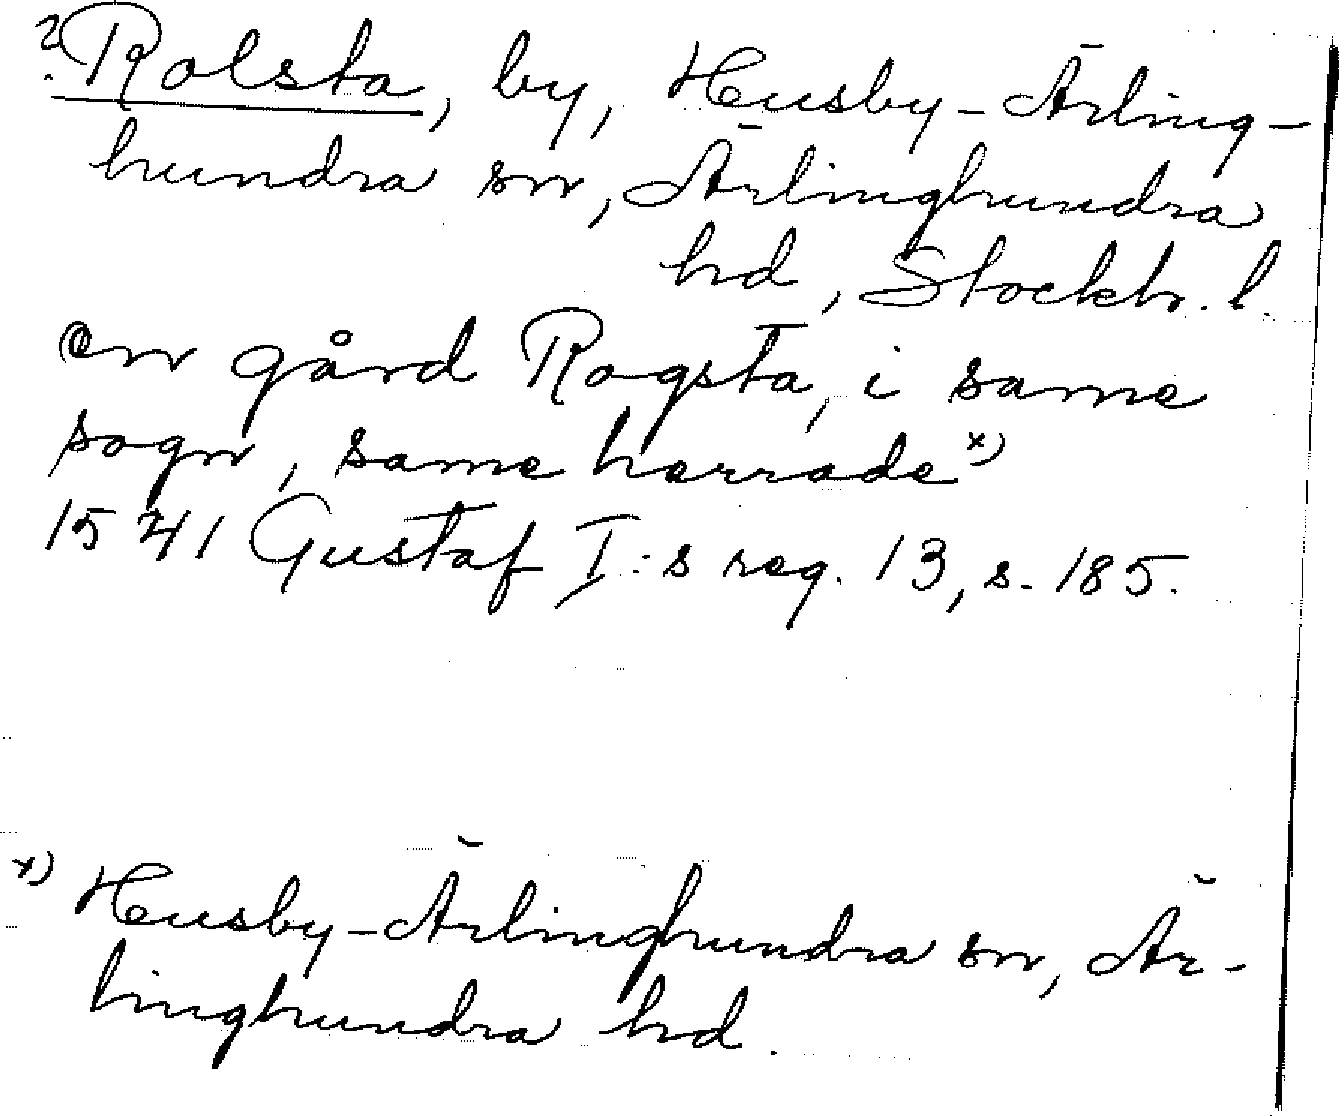 ? Rolsta, by, Husby-Ärling-
hundra sn, Ärlinghundra
hd, Stockh. l.
en gård Rogsta, i same
sogn, same herrade x)
1541 Gustaf I:s reg. 13, s. 185.
x) Husby-Ärlinghundra sn, Är-
linghundra hd.